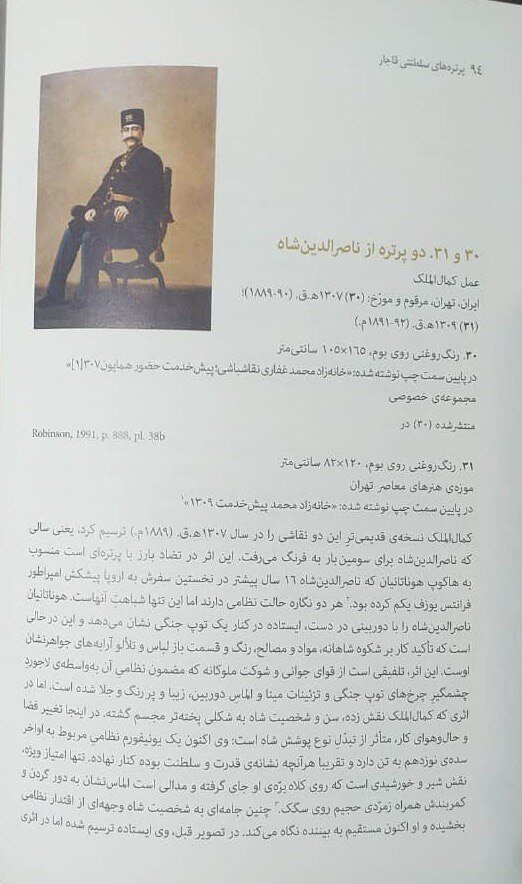 ۹٤ پرتره‌های سلطنتی قاجار
۳۰ و ۳۱. دو پرتره از ناصرالدین‌شاه
عمل کمال‌الملک
ایران، تهران، مرقوم و مورّخ: (۳۰) ۱۳۰۷ه‍.ق. (۹۰-۱۸۸۹)؛
(۳۱) ۱۳۰۹ه‍.ق. (۹۲-۱۸۹۱م.)
۳۰. رنگ‌روغنی روی بوم، ۱۶۵×۱۰۵ سانتی‌متر
در پایین سمت چپ نوشته شده: «خانه‌زاد محمد غفاری نقاشباشی؛ پیش‌خدمت حضور همایون ۳۰۷[۱]»
مجموعه‌ی خصوصی
منتشرشده (۳۰) در
Robinson, 1991, p. 888, pl. 38b
۳۱. رنگ‌روغنی روی بوم، ۱۲۰×۸۲ سانتی‌متر
موزه‌ی هنرهای معاصر تهران
در پایین سمت چپ نوشته شده: «خانه‌زاد محمد پیش‌خدمت ۱۳۰۹»۱
کمال‌الملک نسخه‌ی قدیمی‌تر این دو نقاشی را در سال ۱۳۰۷ه‍.ق. (۱۸۸۹م.) ترسیم کرد، یعنی سالی
که ناصرالدین‌شاه برای سومین بار به فرنگ می‌رفت. این اثر در تضاد بارز با پرتره‌ای است منسوب
به هاکوپ هوناتانیان که ناصرالدین‌شاه ۱۶ سال پیشتر در نخستین سفرش به اروپا پیشکش امپراطور
فرانتس یوزف یکم کرده بود.۲ هر دو نگاره حالت نظامی دارند اما این تنها شباهت آنهاست. هوناتانیان
ناصرالدین‌شاه را با دوربینی در دست، ایستاده در کنار یک توپ جنگی نشان می‌دهد و این در حالی
است که تأکید کار بر شکوه شاهانه، مواد و مصالح، رنگ و قسمت باز لباس و تلألو آرایه‌های جواهرنشان
اوست. این اثر، تلفیقی است از قوای جوانی و شوکت ملوکانه که مضمون نظامی آن به‌واسطه‌ی لاجورد
چشمگیر چرخ‌های توپ جنگی و تزئینات مینا و الماس دوربین، زیبا و پر رنگ و جلا شده است. اما در
اثری که کمال‌الملک نقش زده، سن و شخصیت شاه به شکلی پخته‌تر مجسم گشته. در اینجا تغییر فضا
و حال‌وهوای کار، متأثر از تبدّل نوع پوشش شاه است: وی اکنون یک یونیفورم نظامی مربوط به اواخر
سده‌ی نوزدهم به تن دارد و تقریبا هرآنچه نشانه‌ی قدرت و سلطنت بوده کنار نهاده. تنها امتیاز ویژه،
نقش شیر و خورشیدی است که روی کلاه برّه‌ی او جای گرفته و مدالی است الماس‌نشان به دور گردن و
کمربندش همراه زمردی حجیم روی سگک.۳ چنین جامه‌ای به شخصیت شاه وجهه‌ای از اقتدار نظامی
بخشیده و او اکنون مستقیم به بیننده نگاه می‌کند. در تصویر قبل، وی ایستاده ترسیم شده اما در اثری